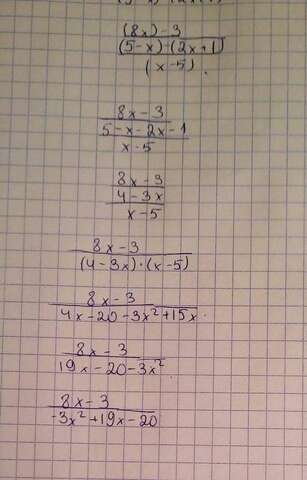 (8x)-3
(5-x)-(2x+1)
(x-5).
8x-3
5-x-2x-1
x-5
8x-3
4-3x
x-5
8x-3
(4-3x)·(x-5)
8x-3
4x-20-3x²+15x.
8x-3
19x-20-3x²
8x-3
-3x²+19x-20